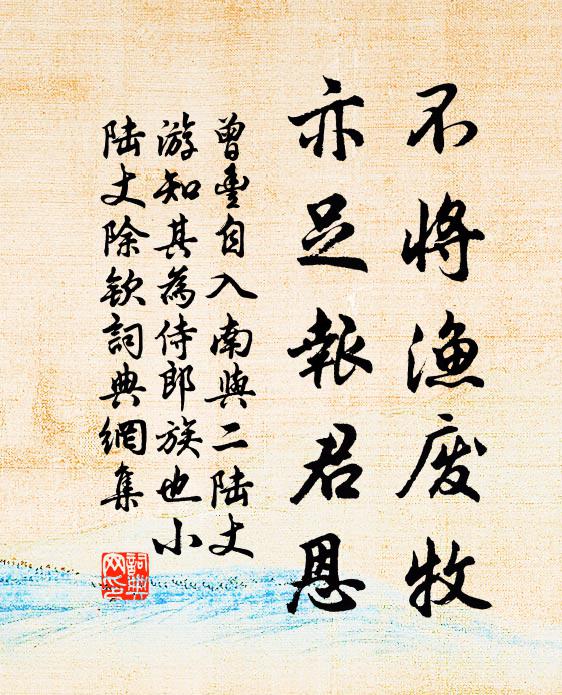 不將漁廢牧
亦足報君恩
曾豐自入南與二陸丈
游知其為侍郎族也小
陸丈除欽詞典網集
詞典